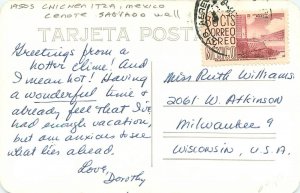 1950s CHICHEN ITZA, MEXICO
CENOTE SAGRADO Wall
TARJETA POSTAL
Greetings from a
hotter clime! And
I mean hot! Having
a wonderful time &
already feel that I've
had enough vacation,
but am anxious to see
what lies ahead.
Love,
Dorothy
60 CTS
CORREO
AEREO
Miss Ruth Williams
2061 W. Atkinson
Milwaukee 9
Wisconsin, U.S.A.